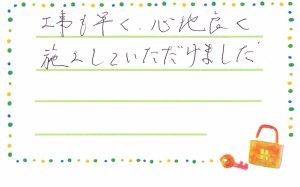 工事も早く、心地良く
施工していただけました